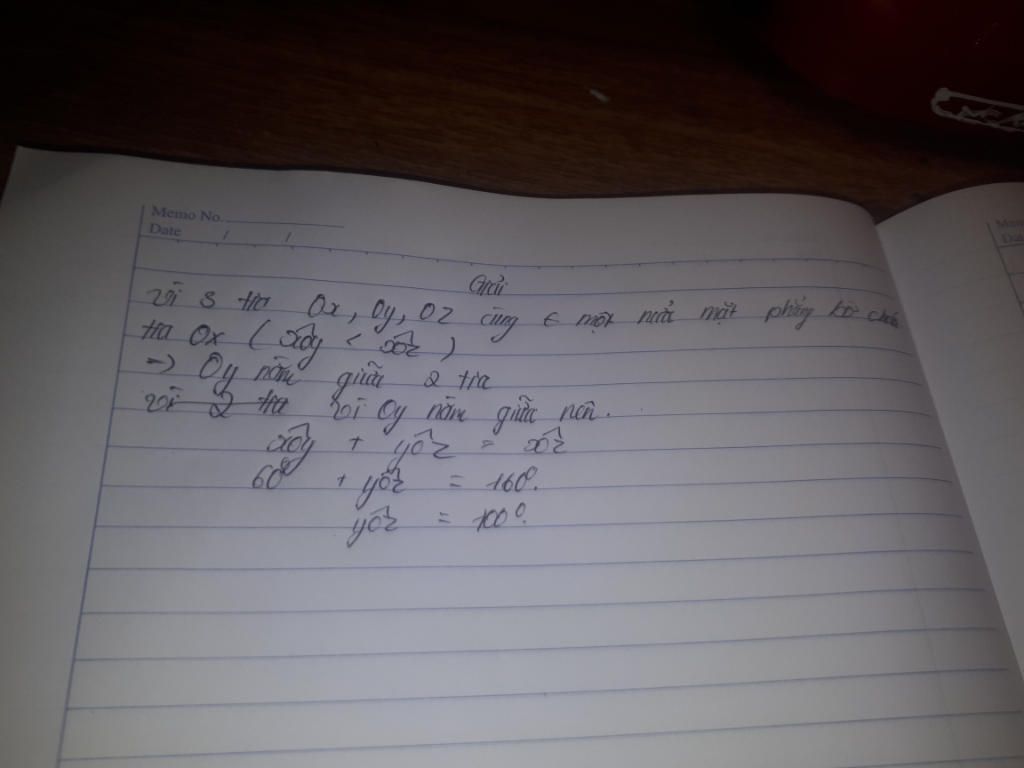 Memo No.
Date / /
Giải
vì 3 tia Ox, Oy, Oz cùng ∈ một nửa mặt phẳng bờ chứa
tia Ox ( xôy < xôz )
=> Oy nằm giữa 2 tia
vì 2 tia vì Oy nằm giữa nên.
xôy + yôz = xôz
60⁰ + yôz = 160⁰.
yôz = 100⁰.